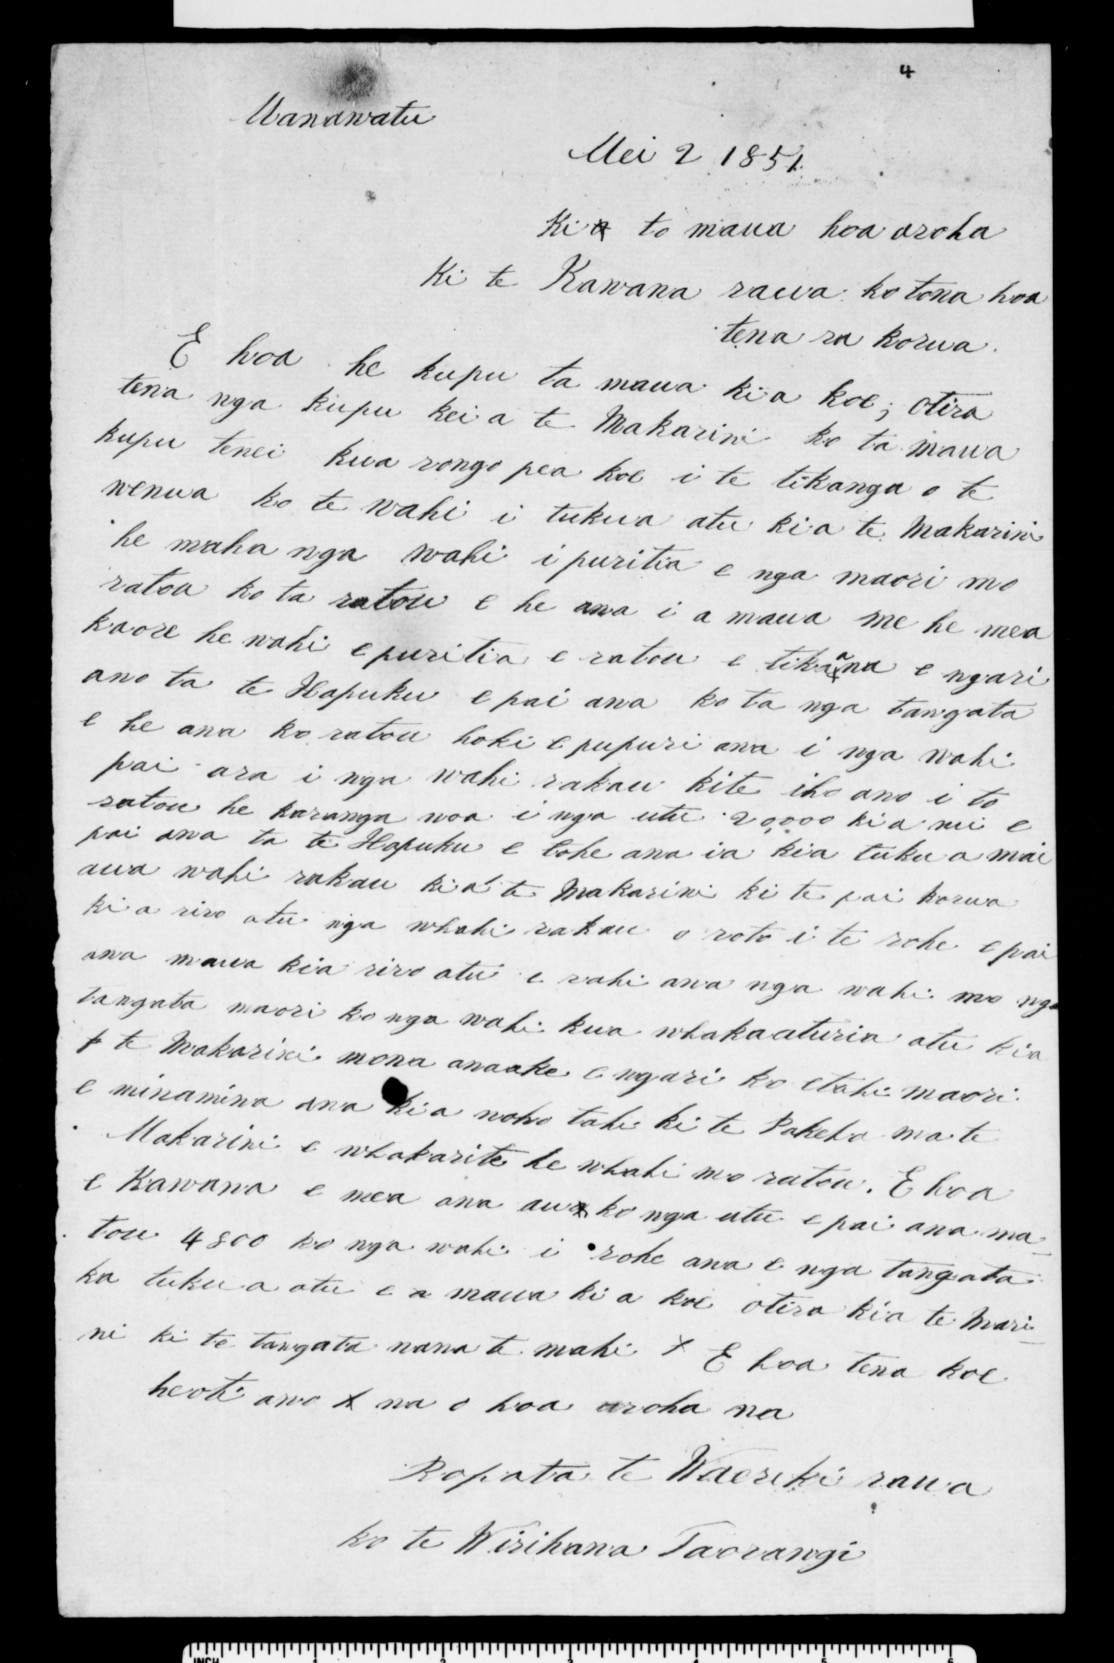 4
Manawatu
Mei 2 1851
Ki a to maua hoa aroha
Ki te Kawana raua ko tona hoa
tena ra korua.
E hoa he kupu ta maua ki a koe; otira
tena nga kupu kei a te Makarini ko ta maua
kupu tenei kua rongo pea koe i te tikanga o te
wenua ko te wahi i tukua atu ki a te Makarini
he maha nga wahi i puritia e nga maori mo
ratou ko ta ratou e he ana i a maua me he mea
kaore he wahi e puritia e ratou e tika ana e ngari
ano ta te Hapuku e pai ana ko ta nga tangata
e he ana ko ratou hoki e pupuri ana i nga wahi
pai ara i nga wahi rakau kite iho ano i to
ratou he karanga noa i nga utu 20,000 kia nui e
pai ana ta te Hapuku e tohe ana ia kia tuku a mai
aua wahi rakau ki a te Makarini ki te pai korua
ki a riro atu nga whahi rakau o roto i te rohe e pai
ana maua kia riro atu e rahi ana nga wahi mo nga
tangata maori ko nga wahi kua whakaaturia atu kia
te Makarini mona anaake e ngari ko etahi maori
e minamina ana kia noho tahi ki te Pakeha ma te
Makarini e whakarite he whahi mo ratou. E hoa
e Kawana e mea ana au ko nga utu e pai ana ma-
tou 4800 ko nga wahi i rohe ana e nga tangata
ka tuku a atu e a maua ki a koe otira kia te Mari-
ni ki te tangata nana te mahi x E hoa tena koe
heoti ano x na o hoa aroha na
Ropata te Waereki raua
ko te Wirihana Taorangi
INCH 1 2 3 4 5 6